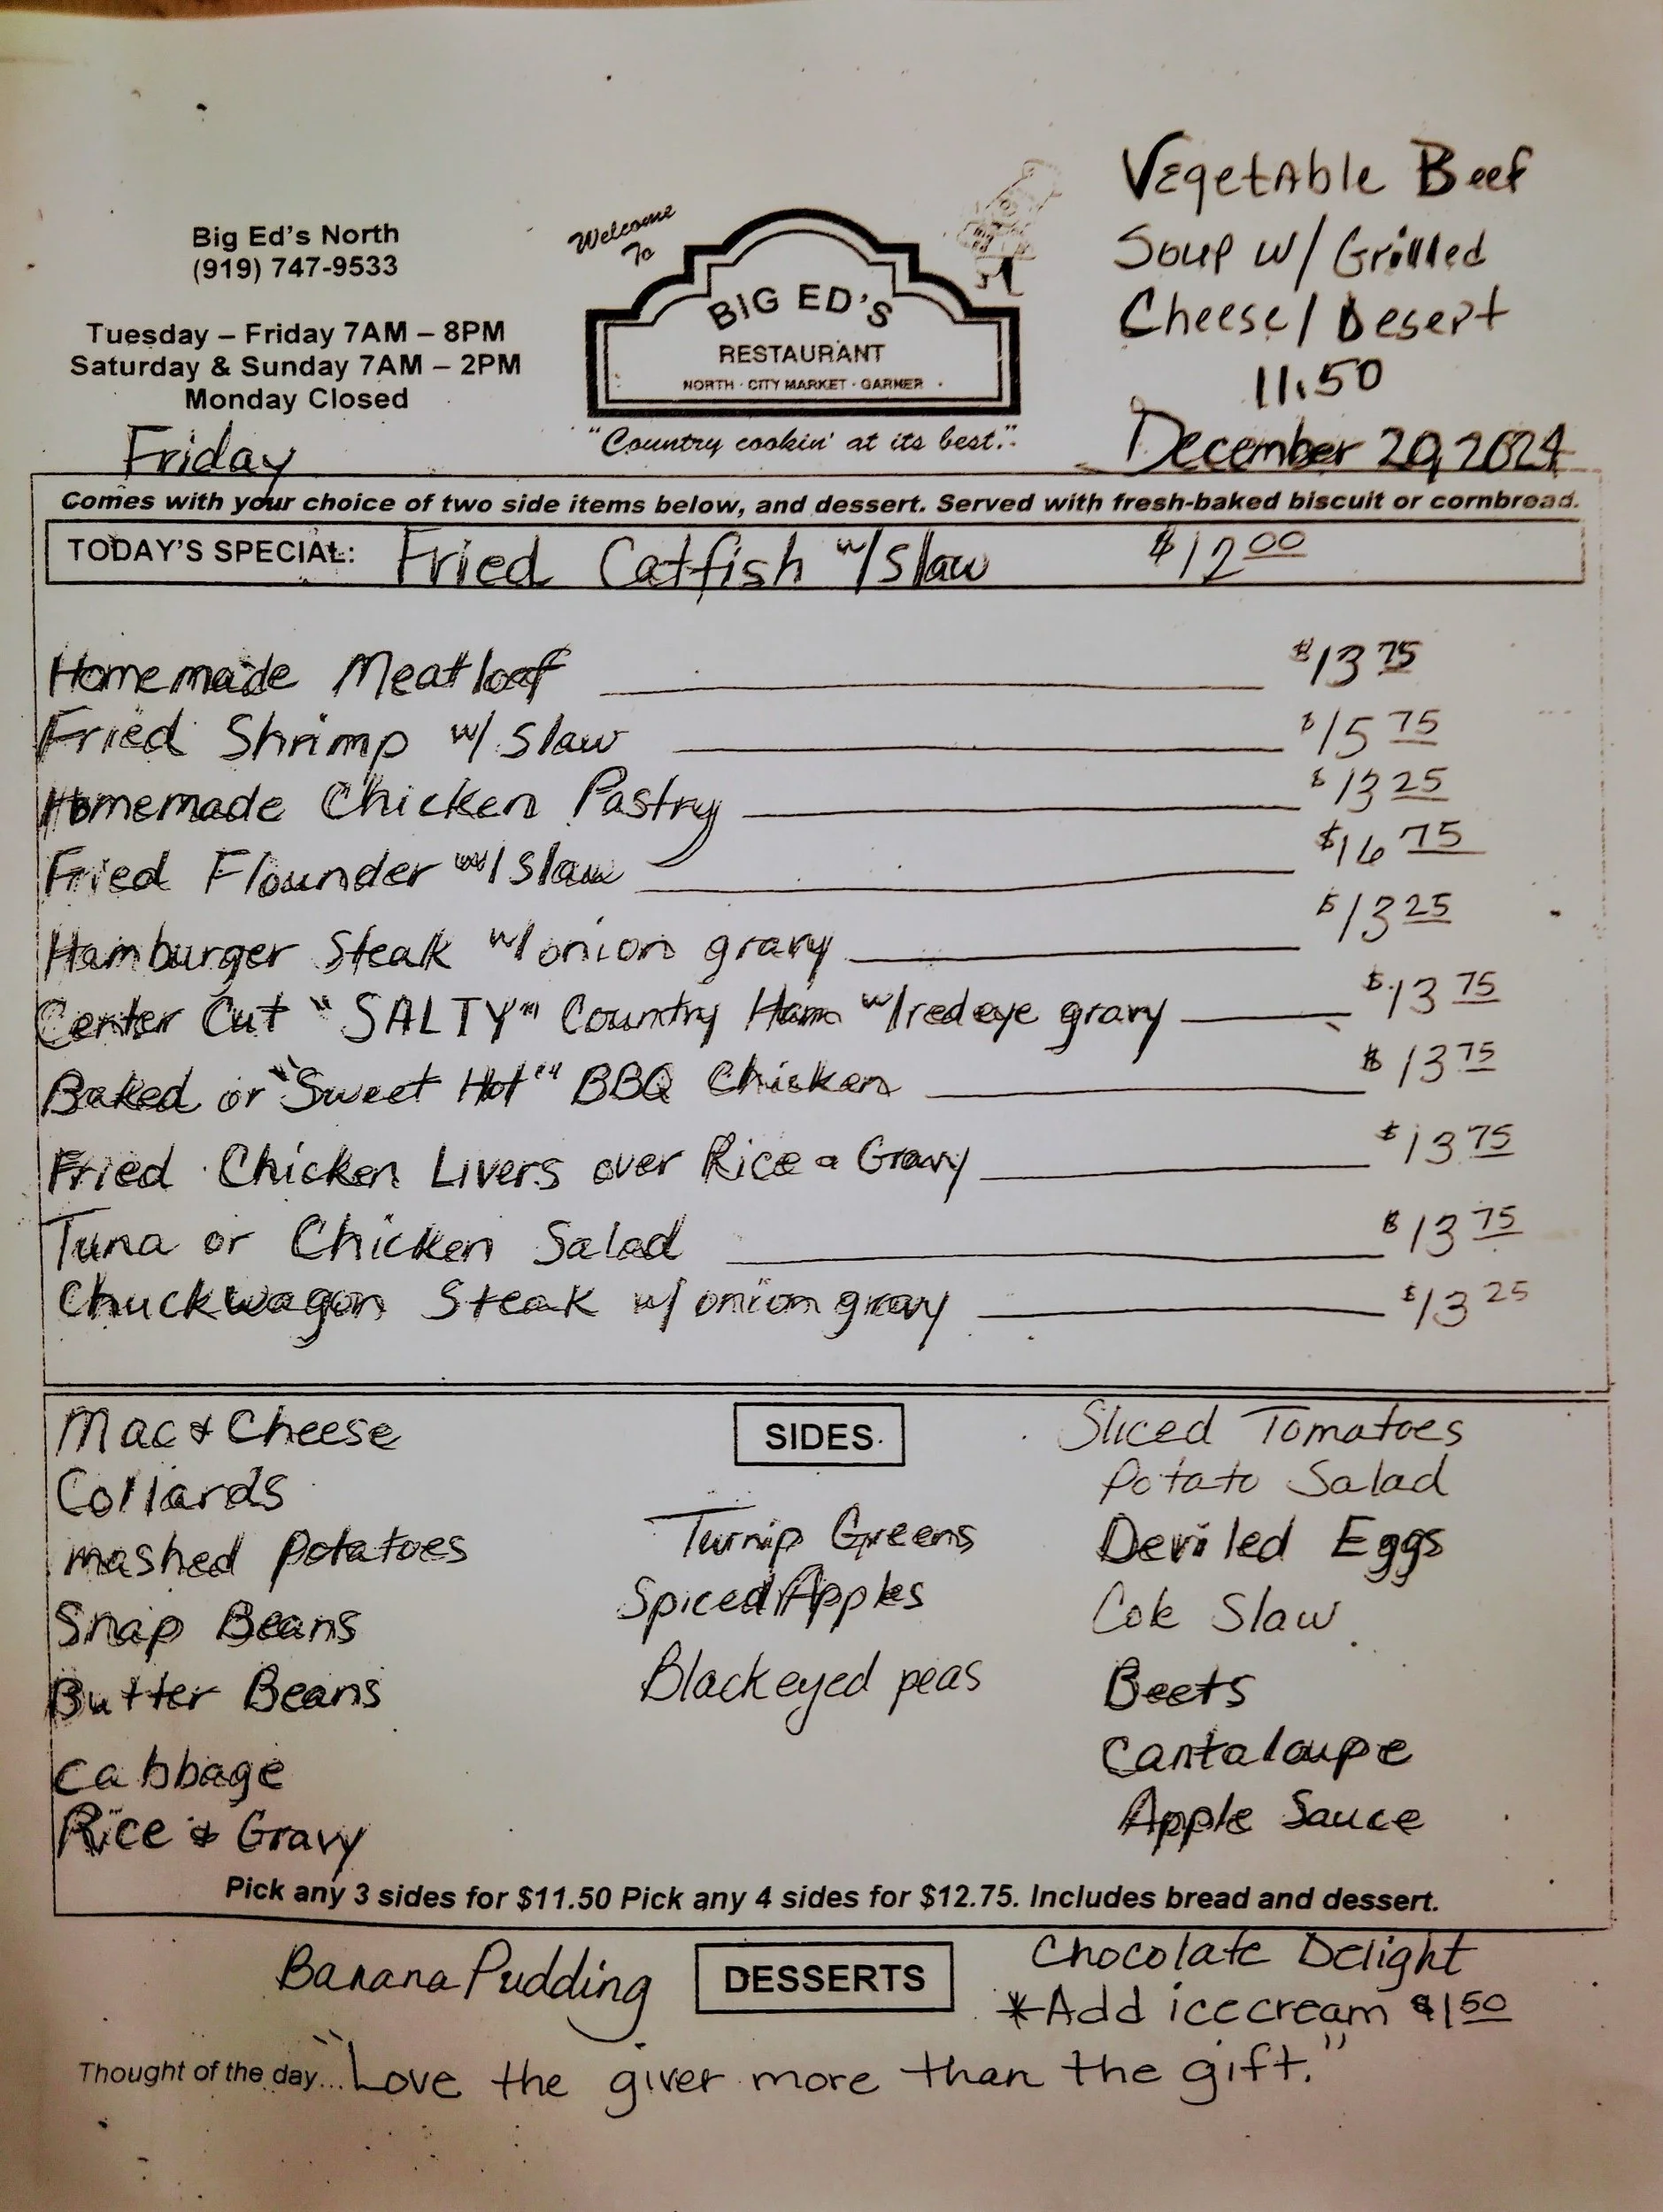 Big Ed's North
(919) 747-9533
Tuesday – Friday 7AM – 8PM
Saturday & Sunday 7AM – 2PM
Monday Closed
Friday
Welcome
To
BIG ED'S
RESTAURANT
NORTH · CITY MARKET · GARNER
"Country cookin' at its best."
VegetAble Beef
Soup w/ Grilled
Cheese/ Desert
11.50
December 20, 2024
Comes with your choice of two side items below, and dessert. Served with fresh-baked biscuit or cornbread.
TODAY'S SPECIAL: Fried Catfish w/slaw $12.00
Homemade Meatloaf $13.75
Fried Shrimp w/ slaw $15.75
Homemade Chicken Pastry $13.25
Fried Flounder w/ slaw $16.75
Hamburger Steak w/ onion gravy $13.25
Center Cut "SALTY" Country Ham w/redeye gravy $13.75
Baked or "Sweet Hot" BBQ Chicken $13.75
Fried Chicken Livers over Rice & Gravy $13.75
Tuna or Chicken Salad $13.75
Chuckwagon Steak w/ onion gravy $13.25
SIDES
Mac & Cheese
Collards
mashed potatoes
Snap Beans
Butter Beans
Cabbage
Rice & Gravy
Turnip Greens
Spiced Apples
Blackeyed peas
Sliced Tomatoes
Potato Salad
Deviled Eggs
Cole Slaw
Beets
Cantaloupe
Apple Sauce
Pick any 3 sides for $11.50 Pick any 4 sides for $12.75. Includes bread and dessert.
DESSERTS
Banana Pudding
Chocolate Delight
*Add icecream $1.50
Thought of the day... "Love the giver more than the gift."